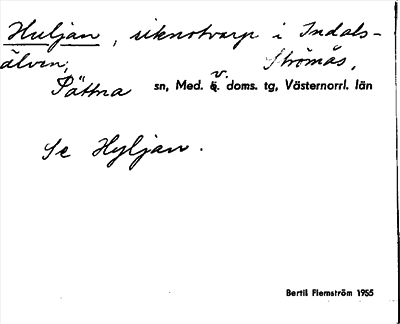 Huljan, siknotvarp i Indals-
älven, Strömås,
Sättna sn, Med. v. doms. tg, Västernorrl. län
Se Hyljan.
Bertil Flemström 1955